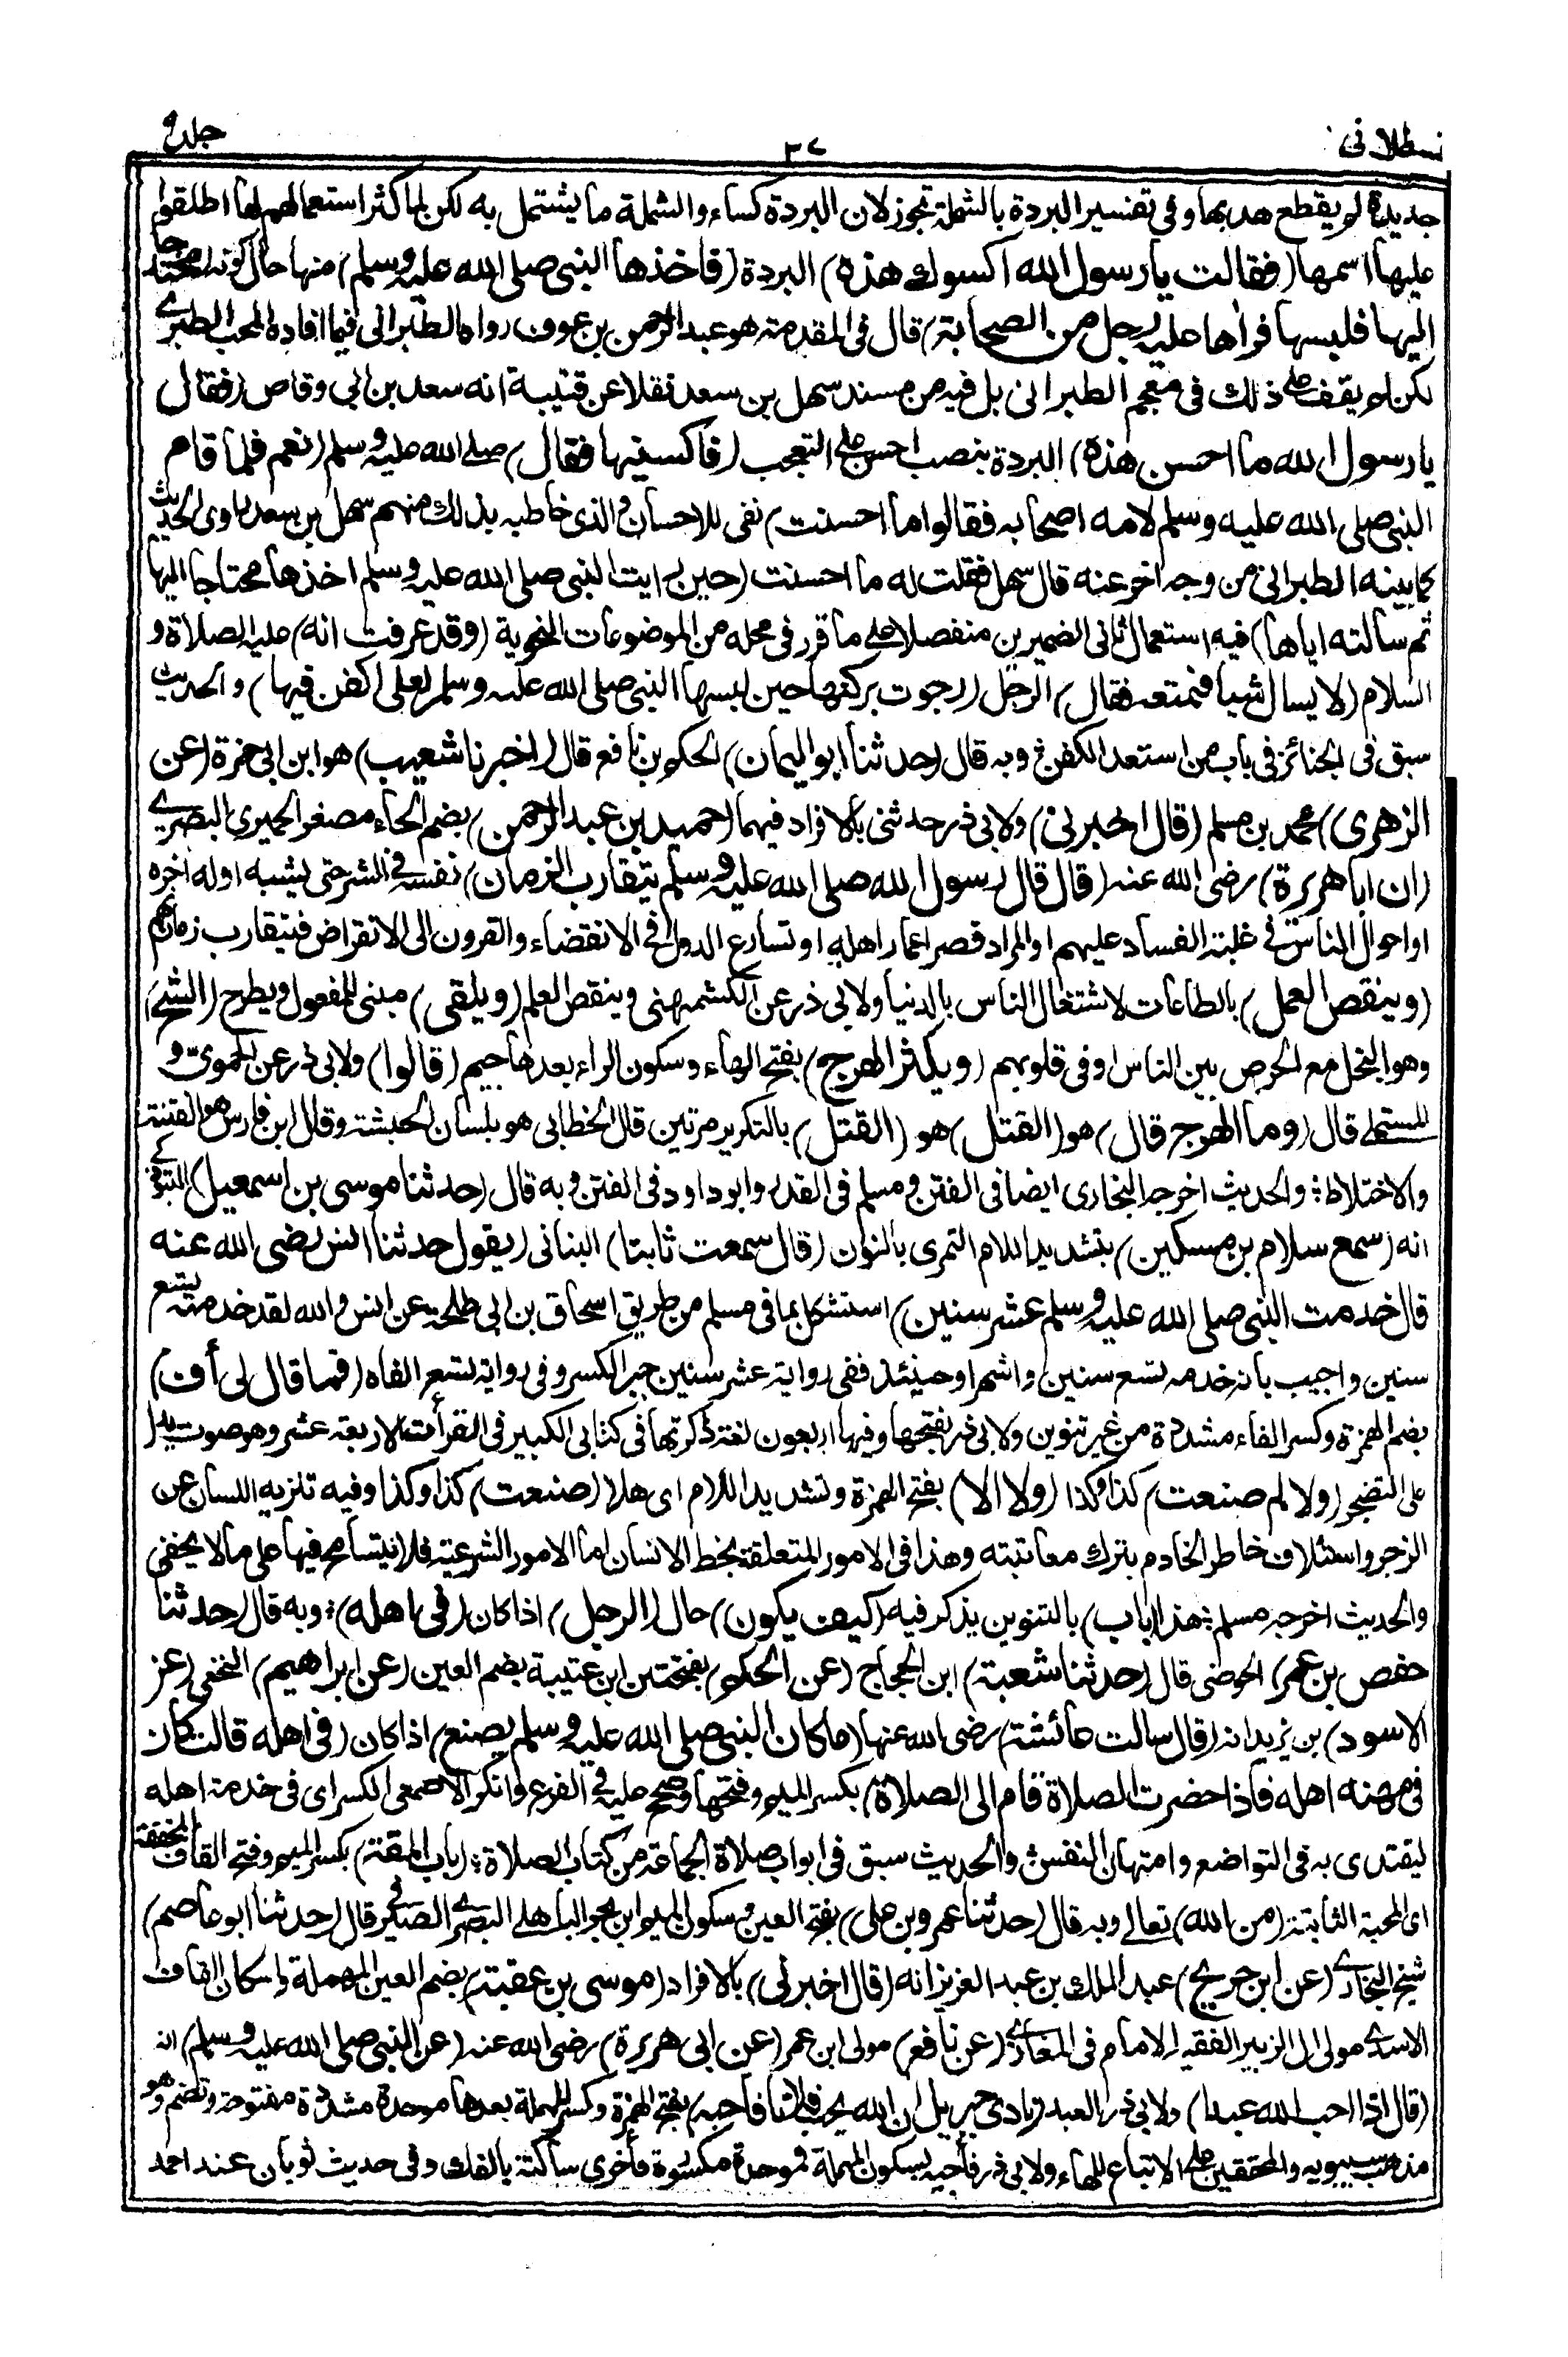 قسطلانی
٣٧
جلد ٩
جديدة لم يقطع هدبها وفي تفسير البردة بالشملة تجوز لان البردة كساء والشملة ما يشتمل به لكن لما كثر استعمالهم لها اطلقوا
عليها اسمها (فقالت يا رسول الله اكسوك هذه) البردة (فاخذها النبى صلى الله عليه وسلم) منها حال كونه (محتاجا
اليها فلبسها فراها عليه رجل من الصحابة) قال فى المقدمة هو عبد الرحمن بن عوف رواه الطبرانى فيما افاده المحب الطبرى
لكن لم يقف على ذلك فى معجم الطبرانى بل فيه من مسند سهل بن سعد نقلا عن قتيبة انه سعد بن ابى وقاص (فقال
يا رسول الله ما احسن هذه) البردة بنصب احسن على التعجب (فاكسنيها فقال) صلى الله عليه وسلم (نعم فلما قام
النبى صلى الله عليه وسلم لامه اصحابه فقالوا ما احسنت) نفى للاحسان والذى خاطبه بذلك منهم سهل بن سعد راوى الحديث
كما بينه الطبرانى من وجه اخر عنه قال سهل فقلت له ما احسنت (حين رايت النبى صلى الله عليه وسلم اخذها محتاجا اليها
ثم سالته اياها) فيه استعمال ثانى الضميرين منفصلا على ما قرر فى محله من الموضوعات النحوية (وقد عرفت انه) عليه الصلاة و
السلام (لا يسال شيا فيمنعه فقال) الرجل (رجوت بركتها حين لبسها النبى صلى الله عليه وسلم لعلى اكفن فيها) والحديث
سبق فى الجنائز فى باب من استعد الكفن؛ وبه قال (حدثنا ابو اليمان) الحكم بن نافع قال (اخبرنا شعيب) هو ابن ابى حمزة (عن
الزهرى) محمد بن مسلم (قال اخبرنى) ولابى ذر حدثنى بالافراد فيهما (حميد بن عبد الرحمن) بضم الحاء مصغر الحميرى البصرى
(ان ابا هريرة) رضى الله عنه (قال قال رسول الله صلى الله عليه وسلم يتقارب الزمان) نفسه فى الشر حتى يشبه اوله اخره
او احوال الناس فى غلبة الفساد عليهم او المراد قصر اعمار اهله او تسارع الدول فى الانقضاء والقرون الى الانقراض فيتقارب زمانهم
(وينقص العمل) بالطاعات لاشتغال الناس بالدنيا ولابى ذر عن الكشميهنى وينقص العلم (ويلقى) مبنى للمفعول ويطرح (الشح)
وهو البخل مع الحرص بين الناس او فى قلوبهم (ويكثر الهرج) بفتح الهاء وسكون الراء بعدها جيم (قالوا) ولابى ذر عن الحموى و
المستملى قال (وما الهرج قال) هو (القتل) هو (القتل) بالتكرير مرتين قال الخطابى هو بلسان الحبشة وقال ابن فارس هو الفتنة
والاختلاط؛ والحديث اخرجه البخارى ايضا فى الفتن ومسلم فى القدر وابو داود فى الفتن؛ وبه قال (حدثنا موسى بن اسمعيل) التبوذكى
انه (سمع سلام بن مسكين) بتشديد اللام النمرى بالنون (قال سمعت ثابتا) البنانى (يقول حدثنا انس رضى الله عنه
قال خدمت النبى صلى الله عليه وسلم عشر سنين) استشكل بما فى مسلم من طريق اسحاق بن ابى طلحة عن انس والله لقد خدمته تسع
سنين واجيب بانه خدمه تسع سنين واشهرا وحينئذ ففى رواية عشر سنين جبر الكسر وفى رواية تسع الغاه (فما قال لى أف)
بضم الهمزة وكسر الفاء مشددة من غير تنوين ولابى ذر بفتحها وفيها اربعون لغة ذكرتها فى كتابى الكبير فى القراءات الاربعة عشر وهو صوت يدل
على التضجر (ولا لم صنعت) كذا وكذا (ولا الا) بفتح الهمزة وتشديد اللام اى هلا (صنعت) كذا وكذا وفيه تنزيه اللسان عن
الزجر واستئلاف خاطر الخادم بترك معاتبته وهذا فى الامور المتعلقة بحظ الانسان اما الامور الشرعية فلا يتسامح فيها على ما لا يخفى
والحديث اخرجه مسلم؛ هذا (باب) بالتنوين يذكر فيه (كيف يكون) حال (الرجل) اذا كان (فى اهله)؛ وبه قال (حدثنا
حفص بن عمر) الحوضى قال (حدثنا شعبة) ابن الحجاج (عن الحكم) بفتحتين ابن عتيبة بضم العين (عن ابراهيم) النخعى (عن
الاسود) بن يزيد انه (قال سالت عائشة) رضى الله عنها (ما كان النبى صلى الله عليه وسلم يصنع) اذا كان (فى اهله قالت كان
فى مهنه اهله فاذا حضرت الصلاة قام الى الصلاة) بكسر الميم وفتحها وصحح عليه فى الفرع وانكر الاصمعى الكسر اى فى خدمة اهله
ليقتدى به فى التواضع وامتهان النفس والحديث سبق فى ابواب صلاة الجماعة من كتاب الصلاة؛ (باب المقة) بكسر الميم وفتح القاف المخففة
اى المحبة الثابتة (من الله) تعالى وبه قال (حدثنا عمرو بن على) بفتح العين وسكون الميم ابن بحر الباهلى البصرى الصيرفى قال (حدثنا ابو عاصم)
شيخ البخارى (عن ابن جريج) عبد الملك بن عبد العزيز انه (قال اخبرنى) بالافراد (موسى بن عقبة) بضم العين المهملة واسكان القاف
الاسدى مولى ال الزبير الفقيه الامام فى المغازى (عن نافع) مولى ابن عمر (عن ابى هريرة) رضى الله عنه (عن النبى صلى الله عليه وسلم) انه
(قال اذا احب الله عبدا) ولابى ذر العبد (نادى جبريل ان الله يحب فلانا فاحبه) بفتح الهمزة وكسر المهملة بعدها موحدة مشددة مفتوحة وتضم وهو
مذهب سيبويه والمحققين على الاتباع للهاء ولابى ذر فأحببه بسكون المهملة فموحدة مكسورة فأخرى ساكنة بالفك وفى حديث ثوبان عند احمد